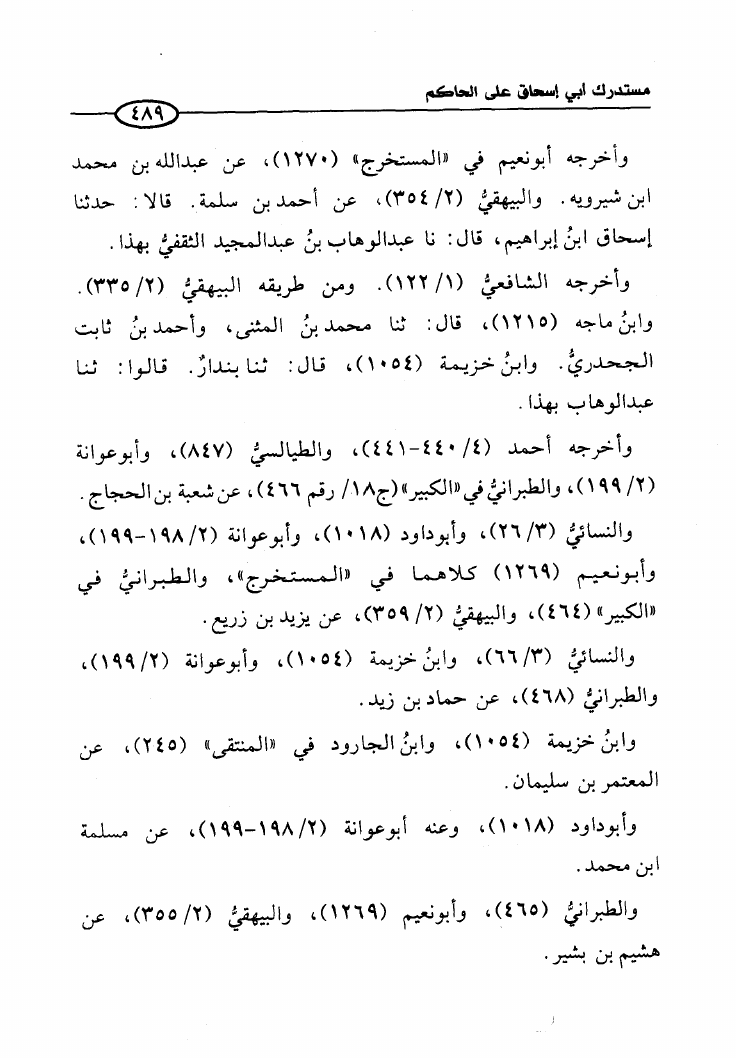 مستدرك أبي إسحاق على الحاكم
٤٨٩
وأخرجه أبونعيم في «المستخرج» (١٢٧٠)، عن عبدالله بن محمد
ابن شيرويه. والبيهقيُّ (٢/ ٣٥٤)، عن أحمد بن سلمة. قالا: حدثنا
إسحاق ابنُ إبراهيم، قال: نا عبدالوهاب بنُ عبدالمجيد الثقفيُّ بهذا.
وأخرجه الشافعيُّ (١/ ١٢٢). ومن طريقه البيهقيُّ (٢/ ٣٣٥).
وابنُ ماجه (١٢١٥)، قال: ثنا محمد بنُ المثنى، وأحمد بنُ ثابت
الجحدريُّ. وابنُ خزيمة (١٠٥٤)، قال: ثنا بندارٌ. قالوا: ثنا
عبدالوهاب بهذا.
وأخرجه أحمد (٤/ ٤٤٠-٤٤١)، والطيالسيُّ (٨٤٧)، وأبوعوانة
(٢/ ١٩٩)، والطبرانيُّ في «الكبير» (ج١٨/ رقم ٤٦٦)، عن شعبة بن الحجاج.
والنسائيُّ (٣/ ٢٦)، وأبوداود (١٠١٨)، وأبوعوانة (٢/ ١٩٨-١٩٩)،
وأبونعيم (١٢٦٩) كلاهما في «المستخرج»، والطبرانيُّ في
«الكبير» (٤٦٤)، والبيهقيُّ (٢/ ٣٥٩)، عن يزيد بن زريع.
والنسائيُّ (٣/ ٦٦)، وابنُ خزيمة (١٠٥٤)، وأبوعوانة (٢/ ١٩٩)،
والطبرانيُّ (٤٦٨)، عن حماد بن زيد.
وابنُ خزيمة (١٠٥٤)، وابنُ الجارود في «المنتقى» (٢٤٥)، عن
المعتمر بن سليمان.
وأبوداود (١٠١٨)، وعنه أبوعوانة (٢/ ١٩٨-١٩٩)، عن مسلمة
ابن محمد.
والطبرانيُّ (٤٦٥)، وأبونعيم (١٢٦٩)، والبيهقيُّ (٢/ ٣٥٥)، عن
هشيم بن بشير.